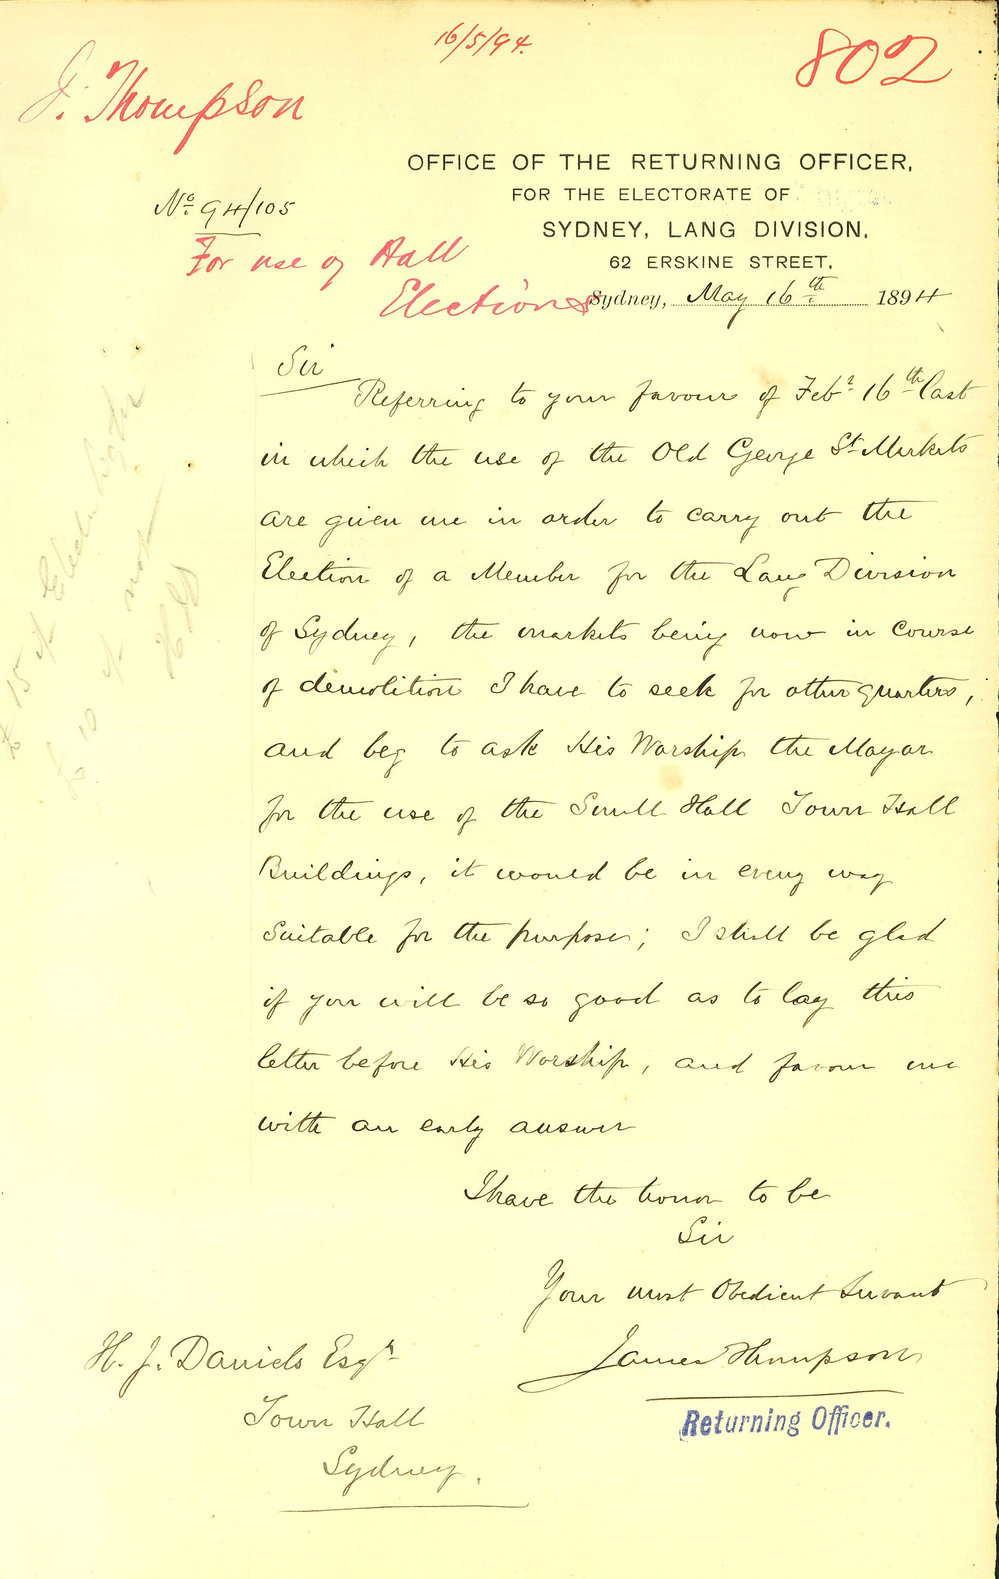 16/5/94.
802
J. Thompson
OFFICE OF THE RETURNING OFFICER,
FOR THE ELECTORATE OF
SYDNEY, LANG DIVISION,
62 ERSKINE STREET,
No. 94/105
For use of Hall
Elections
Sydney, May 16th 1894
Sir
Referring to your favour of Feby 16th last
in which the use of the Old George St Markets
are given me in order to carry out the
Election of a Member for the Lang Division
of Sydney, the markets being now in course
of demolition I have to seek for other quarters,
and beg to ask His Worship the Mayor
for the use of the Small Hall Town Hall
Buildings, it would be in every way
suitable for the purpose; I shall be glad
if you will be so good as to lay this
letter before His Worship, and favour me
with an early answer
I have the honor to be
Sir
Your most Obedient Servant
James Thompson
Returning Officer.
H. J. Daniels Esqr
Town Hall
Sydney.
£15 if Electric light
£10 if not